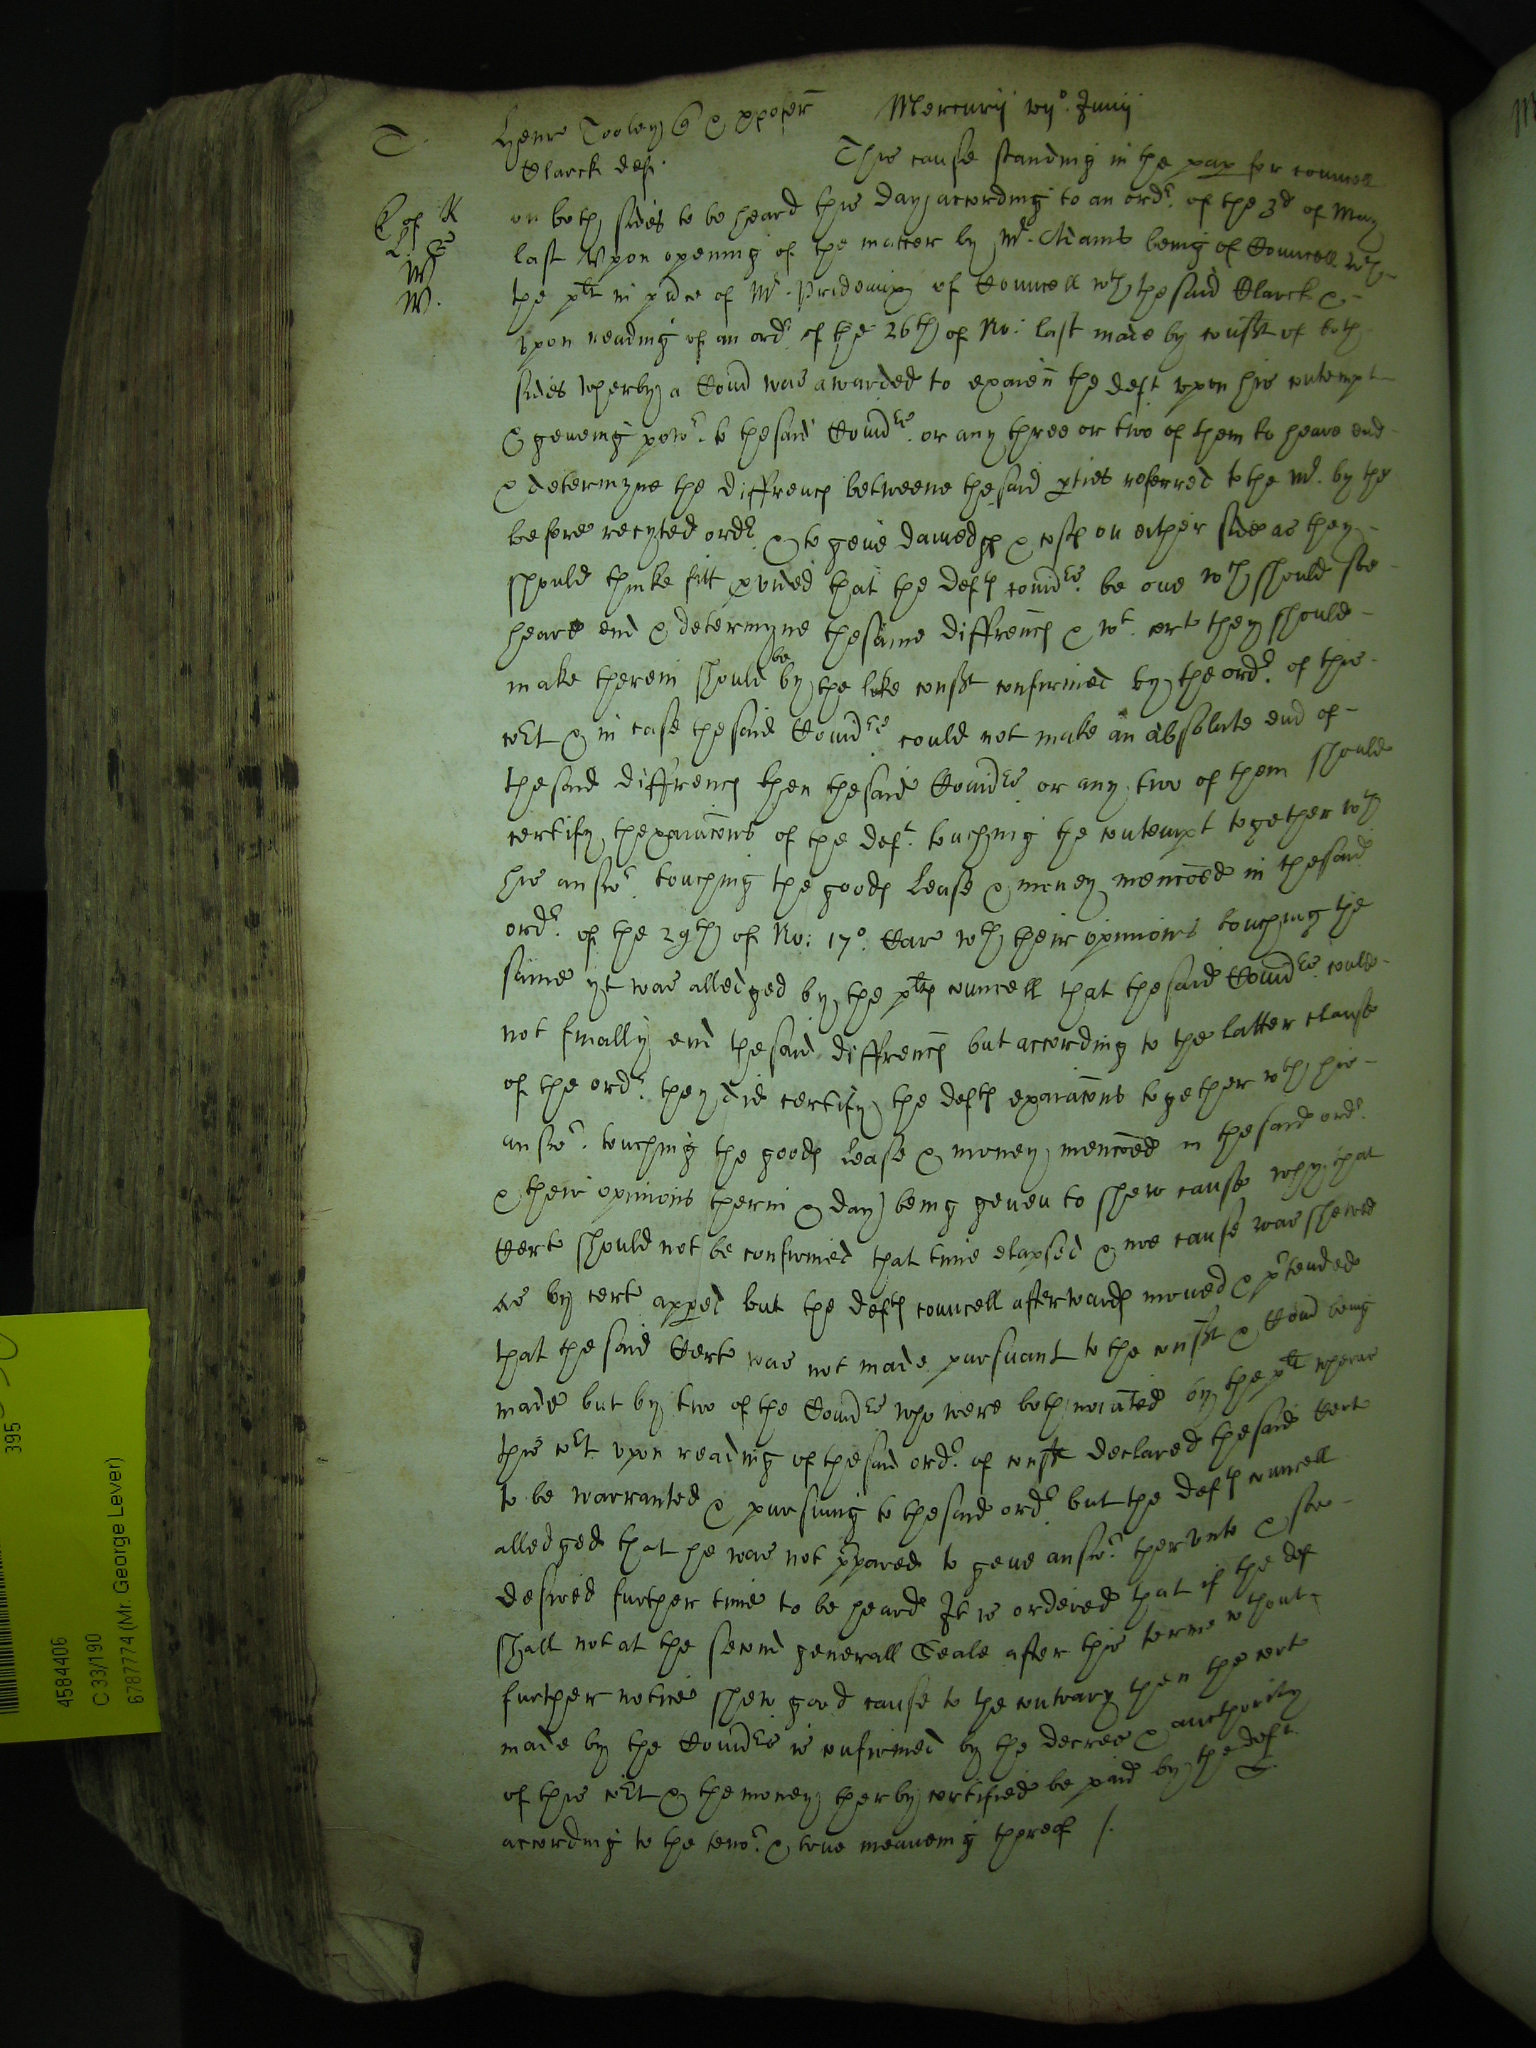 T. Henr Tooley q & xpofer Mercurij vijº. Junij
Clarck deft. This cause standing in the pap for councell
on both sides to be heard this day according to an ordr. of the 3d of May
last Upon opening of the matter by Mr. Adams being of Councell wth
the plt in pnce of Mr. Prideaux of Councell wth the said Clarck &
upon reading of an ordr. of the 26th of No: last made by consent of both
sides wherby a Comd was awarded to examin the deft upon his contempt
& geveing powr. to the said Comdrs. or any three or two of them to heare end
& determyne the diffrencs betweene thesaid pties referred to the Mr. by the
before recyted ordr. & to geve damedgs & costs on either side as they
should thinke fitt pvided that the defts comdrs. be one wch should soe
heare end & determyne thesame diffrencs & wt. cert they should
make therein should be by the like consent confirmed by the ordr. of this
crt & in case the said Comdrs could not make an absolute end of
thesaid diffrencs then thesaid Comdrs or any two of them should
certify thexaiacons of the deft. touching the contempt together wth
his answr. touching the goods Lease & money mencoed in thesaid
ordr. of the 29th of No: 17º. Car wth their opinions touching the
same yt was alledged by the plts councell that thesaid Comdrs. could
not finally end thesaid diffrencs but according to the latter clause
of the ordr. they did certify the defts exaiacons together wth his
answr. touching the goods Lease & money mencoed in thesaid ordr.
& their opinions therin & day being geven to shew cause why that
Cert should not be confirmed that time elapsed & noe cause was shewed
as by cert appeed but the defts councell afterwards moved & ptended
that the said Cert was not made pursuant to the consent & Comd being
made but by two of the Comdrs who were both noiated by the plt wheras
this crt upon reading of thesaid ordr. of consent declared thesaid Cert
to be warranted & pursuing to thesaid ordr. but the defts councell
alledged that he was not ppared to geve answr. therunto & soe
desired further time to be heard It is ordered that if the def
shall not at the second generall Seale after this terme wthout
further notice shew good cause to the contrary then the cert
made by the Comdrs is confirmed by the decree & aucthority
of this crt & the money therby certified be paid by the deft.
according to the tenor. & true meaneing thereof /.
L of K
W
W.
395
4584406
C 33/190
6787774 (Mr. George Lever)